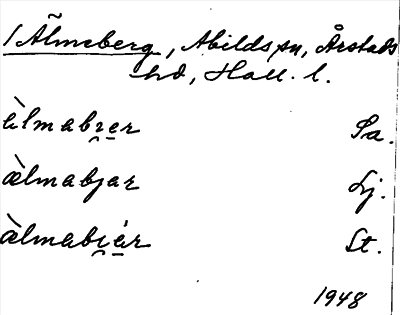 /Älmeberg, Abilds sn, Årstads
hd, Hall. l.
àlmabi̯e̠r Sa.
æ̀lmabjar Lj.
æ̀lmabi̯ár St.
1948